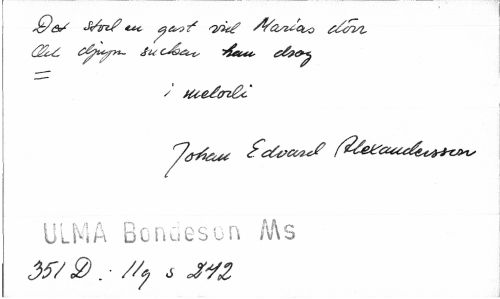 Det stod en gast vid Marias dörr
Och djupa suckar han drog
=
1 melodi
Johan Edvard Alexandersson
ULMA Bondeson Ms
351 D. : 11q s 272